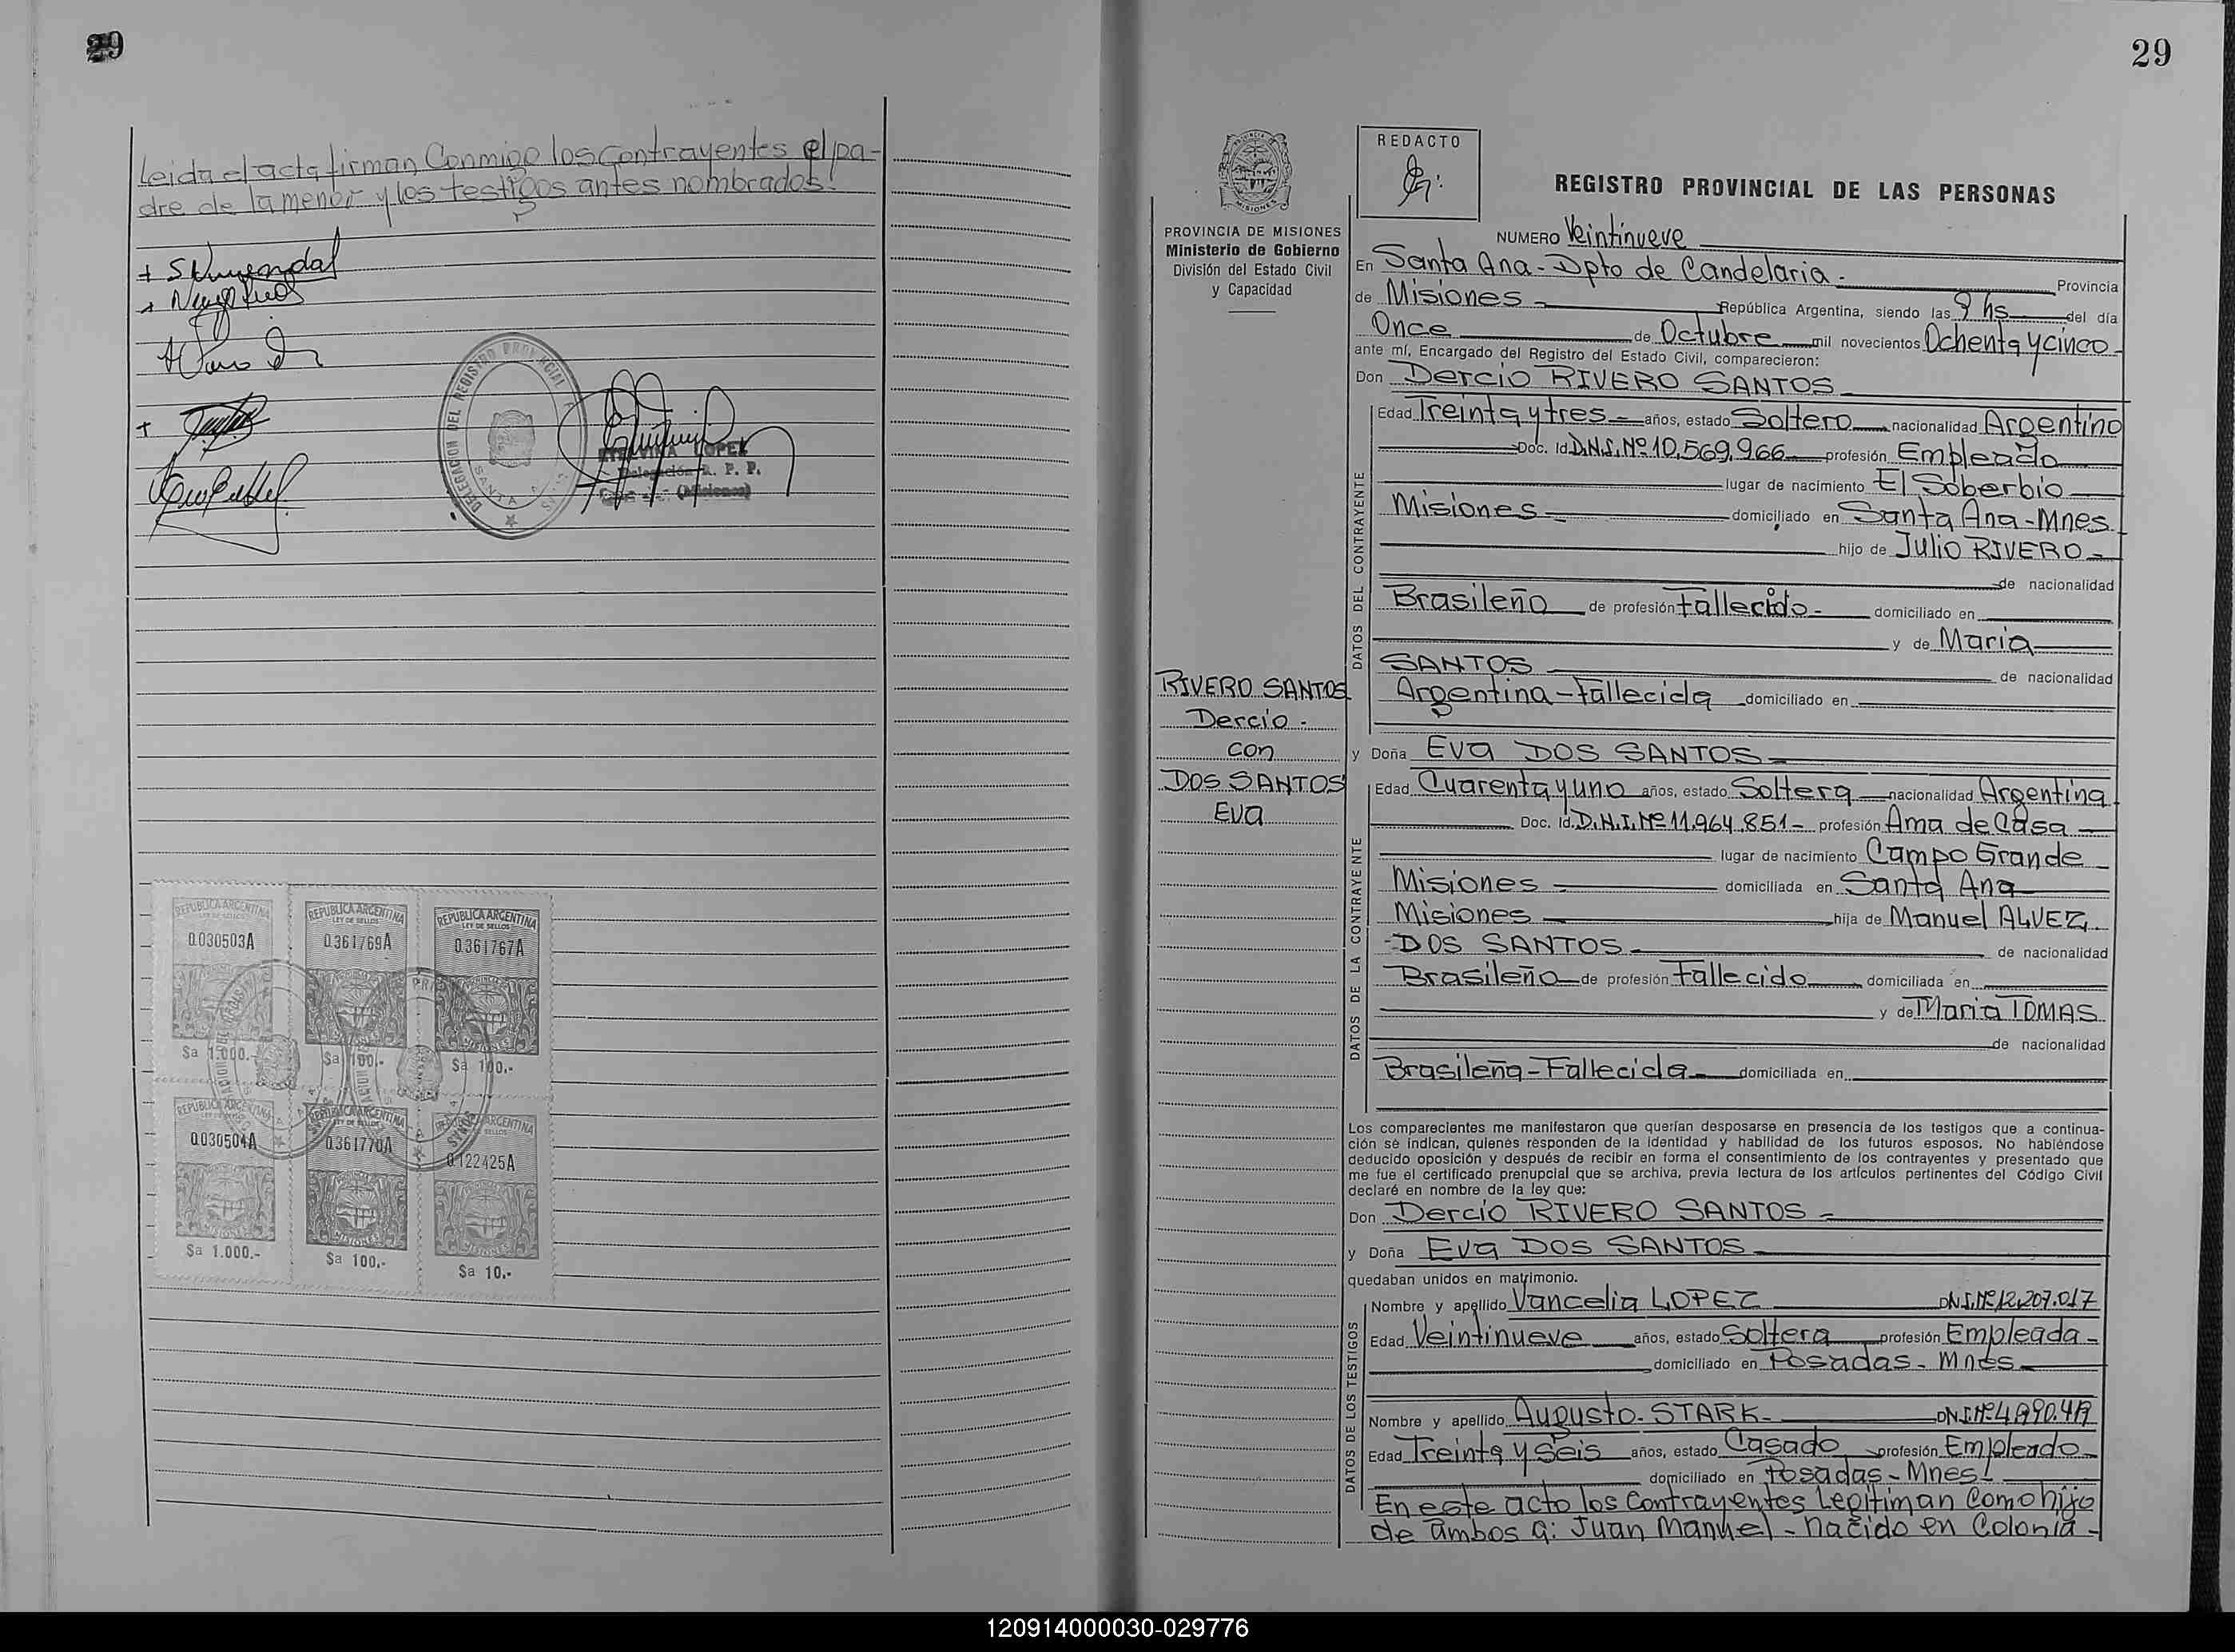 29
Leida el acta firman Conmigo los Contrayentes el pa-
dre de la menor y los testigos antes nombrados.
DELEGACION DEL REGISTRO PROVINCIAL
SANTA
LOPEZ
Delegación R. P. P.
(Misiones)
REPUBLICA ARGENTINA
LEY DE SELLOS
0.030503A
Sa 1.000.-
REPUBLICA ARGENTINA
LEY DE SELLOS
0.361769A
MISIONES
Sa 100.-
REPUBLICA ARGENTINA
LEY DE SELLOS
0.361767A
MISIONES
Sa 100,-
REPUBLICA ARGENTINA
0.030504A
MISIONES
Sa 1.000.-
REPUBLICA ARGENTINA
LEY DE SELLOS
0.361770A
MISIONES
Sa 100,-
REPUBLICA ARGENTINA
LEY DE SELLOS
0.122425A
MISIONES
Sa 10,-
29
PROVINCIA DE MISIONES
Ministerio de Gobierno
División del Estado Civil
y Capacidad
RIVERO SANTOS
Dercio -
con
DOS SANTOS
Eva
REDACTO
REGISTRO PROVINCIAL DE LAS PERSONAS
NUMERO Veintinueve
En Santa Ana - Dpto de Candelaria - Provincia
de Misiones - República Argentina, siendo las 9 hs del día
Once de Octubre mil novecientos Ochenta y cinco -
ante mí, Encargado del Registro del Estado Civil, comparecieron:
Don Dercio RIVERO SANTOS
DATOS DEL CONTRAYENTE
Edad Treinta y tres - años, estado Soltero nacionalidad Argentino
Doc. Id. D.N.I. Nº 10.569.966 profesión Empleado
lugar de nacimiento El Soberbio
Misiones - domiciliado en Santa Ana - Mnes.
hijo de Julio RIVERO -
de nacionalidad
Brasileño de profesión Fallecido - domiciliado en
y de Maria
SANTOS de nacionalidad
Argentina - Fallecida domiciliado en
y Doña Eva DOS SANTOS -
DATOS DE LA CONTRAYENTE
Edad Cuarenta y uno años, estado Soltera nacionalidad Argentina
Doc. Id. D.N.I. Nº 11.964.851 - profesión Ama de Casa
lugar de nacimiento Campo Grande
Misiones - domiciliada en Santa Ana
Misiones hija de Manuel ALVEZ
- DOS SANTOS - de nacionalidad
Brasileño de profesión Fallecido domiciliada en
y de Maria TOMAS
de nacionalidad
Brasileña - Fallecida domiciliada en
Los comparecientes me manifestaron que querían desposarse en presencia de los testigos que a continua-
ción se indican, quienes responden de la identidad y habilidad de los futuros esposos. No habiéndose
deducido oposición y después de recibir en forma el consentimiento de los contrayentes y presentado que
me fue el certificado prenupcial que se archiva, previa lectura de los artículos pertinentes del Código Civil
declaré en nombre de la ley que:
Don Dercio RIVERO SANTOS -
y Doña Eva DOS SANTOS
quedaban unidos en matrimonio.
DATOS DE LOS TESTIGOS
Nombre y apellido Vancelia LOPEZ DN.I. Nº 12.207.017
Edad Veintinueve años, estado Soltera profesión Empleada -
domiciliado en Posadas - Mnes
Nombre y apellido Augusto - STARK -
Edad Treinta y Seis años, estado Casado profesión Empleado
domiciliado en Posadas - Mnes
En este acto los Contrayentes Legitiman Como hijo
de ambos a: Juan Manuel - nacido en Colonia -
120914000030-029776